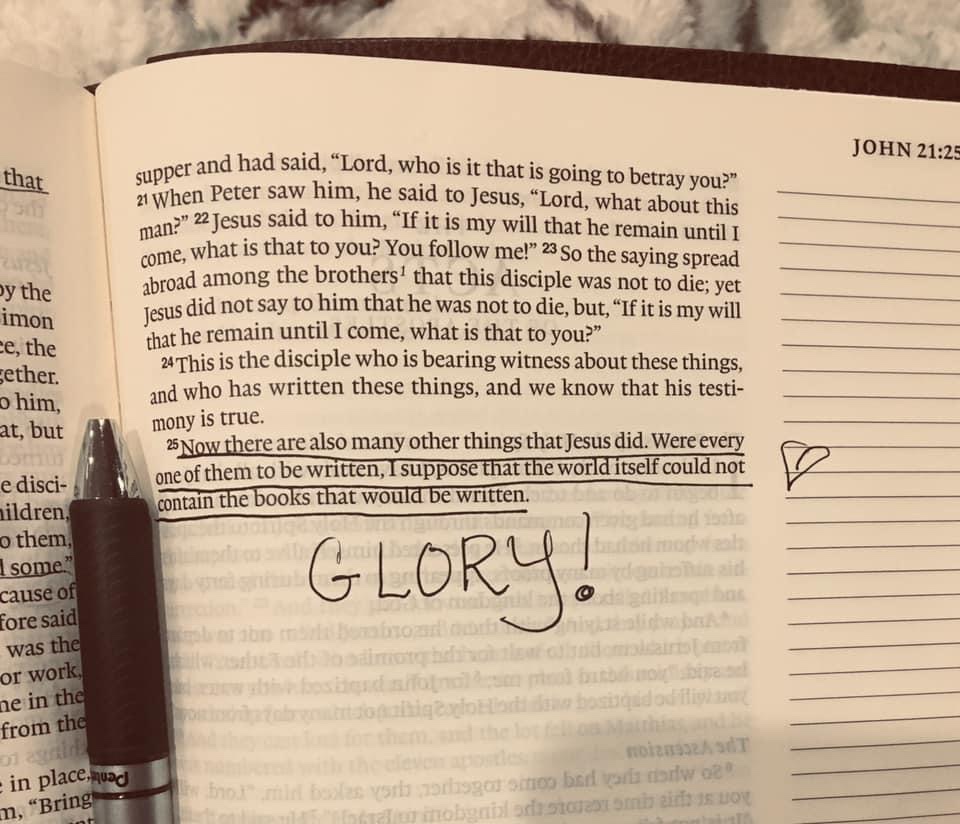 JOHN 21:25
supper and had said, “Lord, who is it that is going to betray you?”
21 When Peter saw him, he said to Jesus, “Lord, what about this
man?” 22 Jesus said to him, “If it is my will that he remain until I
come, what is that to you? You follow me!” 23 So the saying spread
abroad among the brothers1 that this disciple was not to die; yet
Jesus did not say to him that he was not to die, but, “If it is my will
that he remain until I come, what is that to you?”
24 This is the disciple who is bearing witness about these things,
and who has written these things, and we know that his testi-
mony is true.
25 Now there are also many other things that Jesus did. Were every
one of them to be written, I suppose that the world itself could not
contain the books that would be written.
GLORY!
that
by the
the
him,
at, but
disci-
them,
some.”
cause of
said
was the
or work,
in the
from the
in place,
“Bring